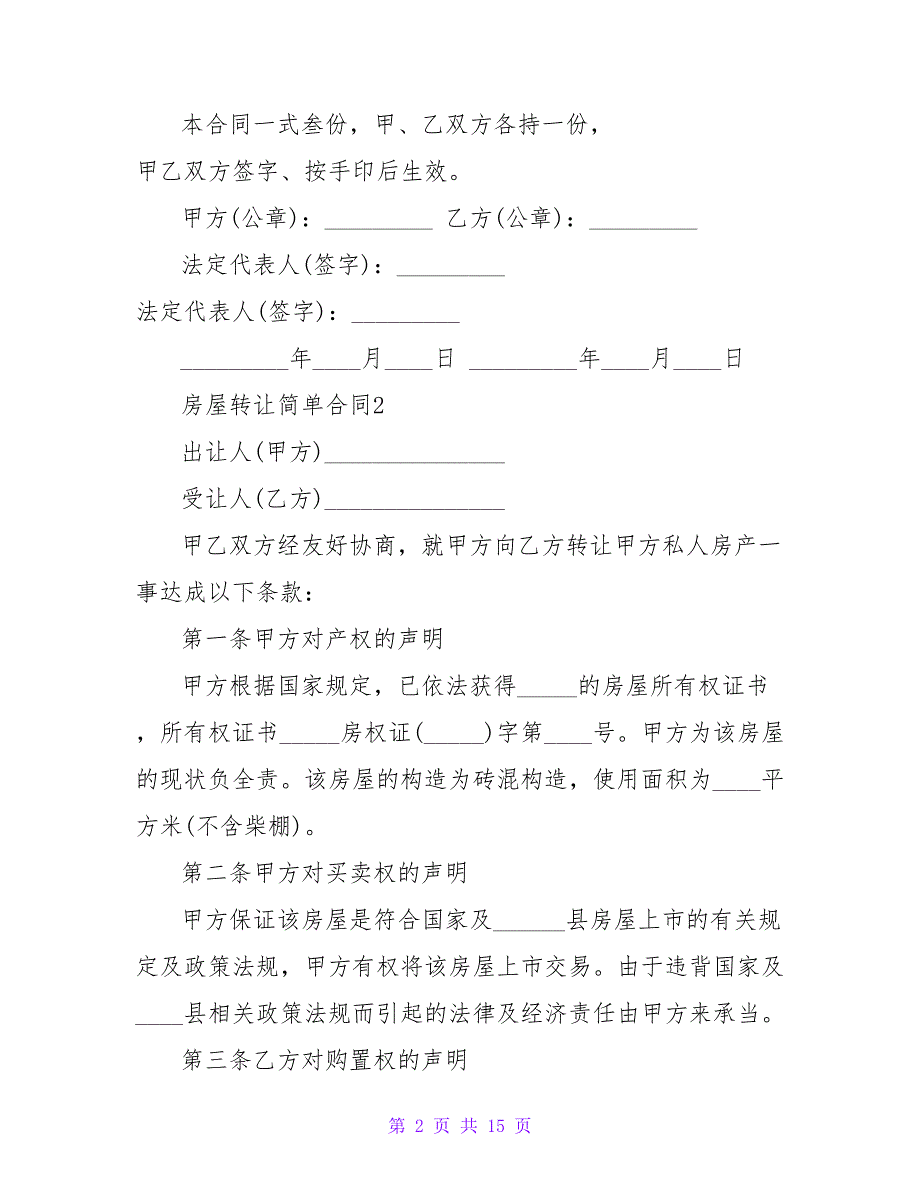 本合同一式叁份，甲、乙双方各持一份，
甲乙双方签字、按手印后生效。
甲方(公章)：_________ 乙方(公章)：_________
法定代表人(签字)：_________
法定代表人(签字)：_________
_________年____月____日 _________年____月____日
房屋转让简单合同2
出让人(甲方)_______________
受让人(乙方)_______________
甲乙双方经友好协商，就甲方向乙方转让甲方私人房产一
事达成以下条款：
第一条甲方对产权的声明
甲方根据国家规定，已依法获得_____的房屋所有权证书
，所有权证书_____房权证(_____)字第____号。甲方为该房屋
的现状负全责。该房屋的构造为砖混构造，使用面积为____平
方米(不含柴棚)。
第二条甲方对买卖权的声明
甲方保证该房屋是符合国家及______县房屋上市的有关规
定及政策法规，甲方有权将该房屋上市交易。由于违背国家及
____县相关政策法规而引起的法律及经济责任由甲方来承当。
第三条乙方对购置权的声明
第 2 页 共 15 页